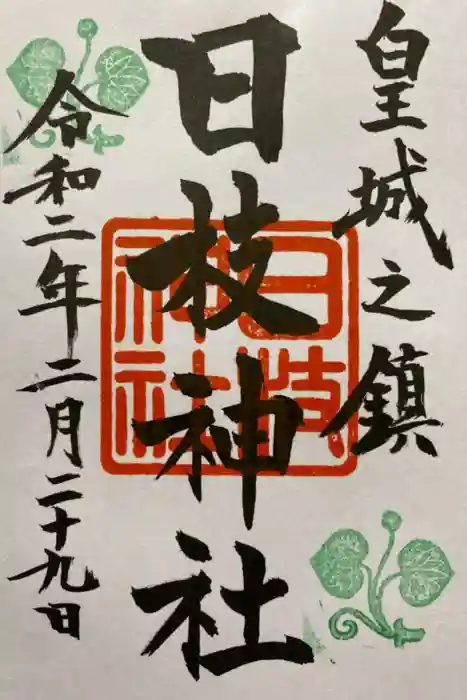 皇城之鎮
日枝神社
日枝神社
令和二年二月二十九日